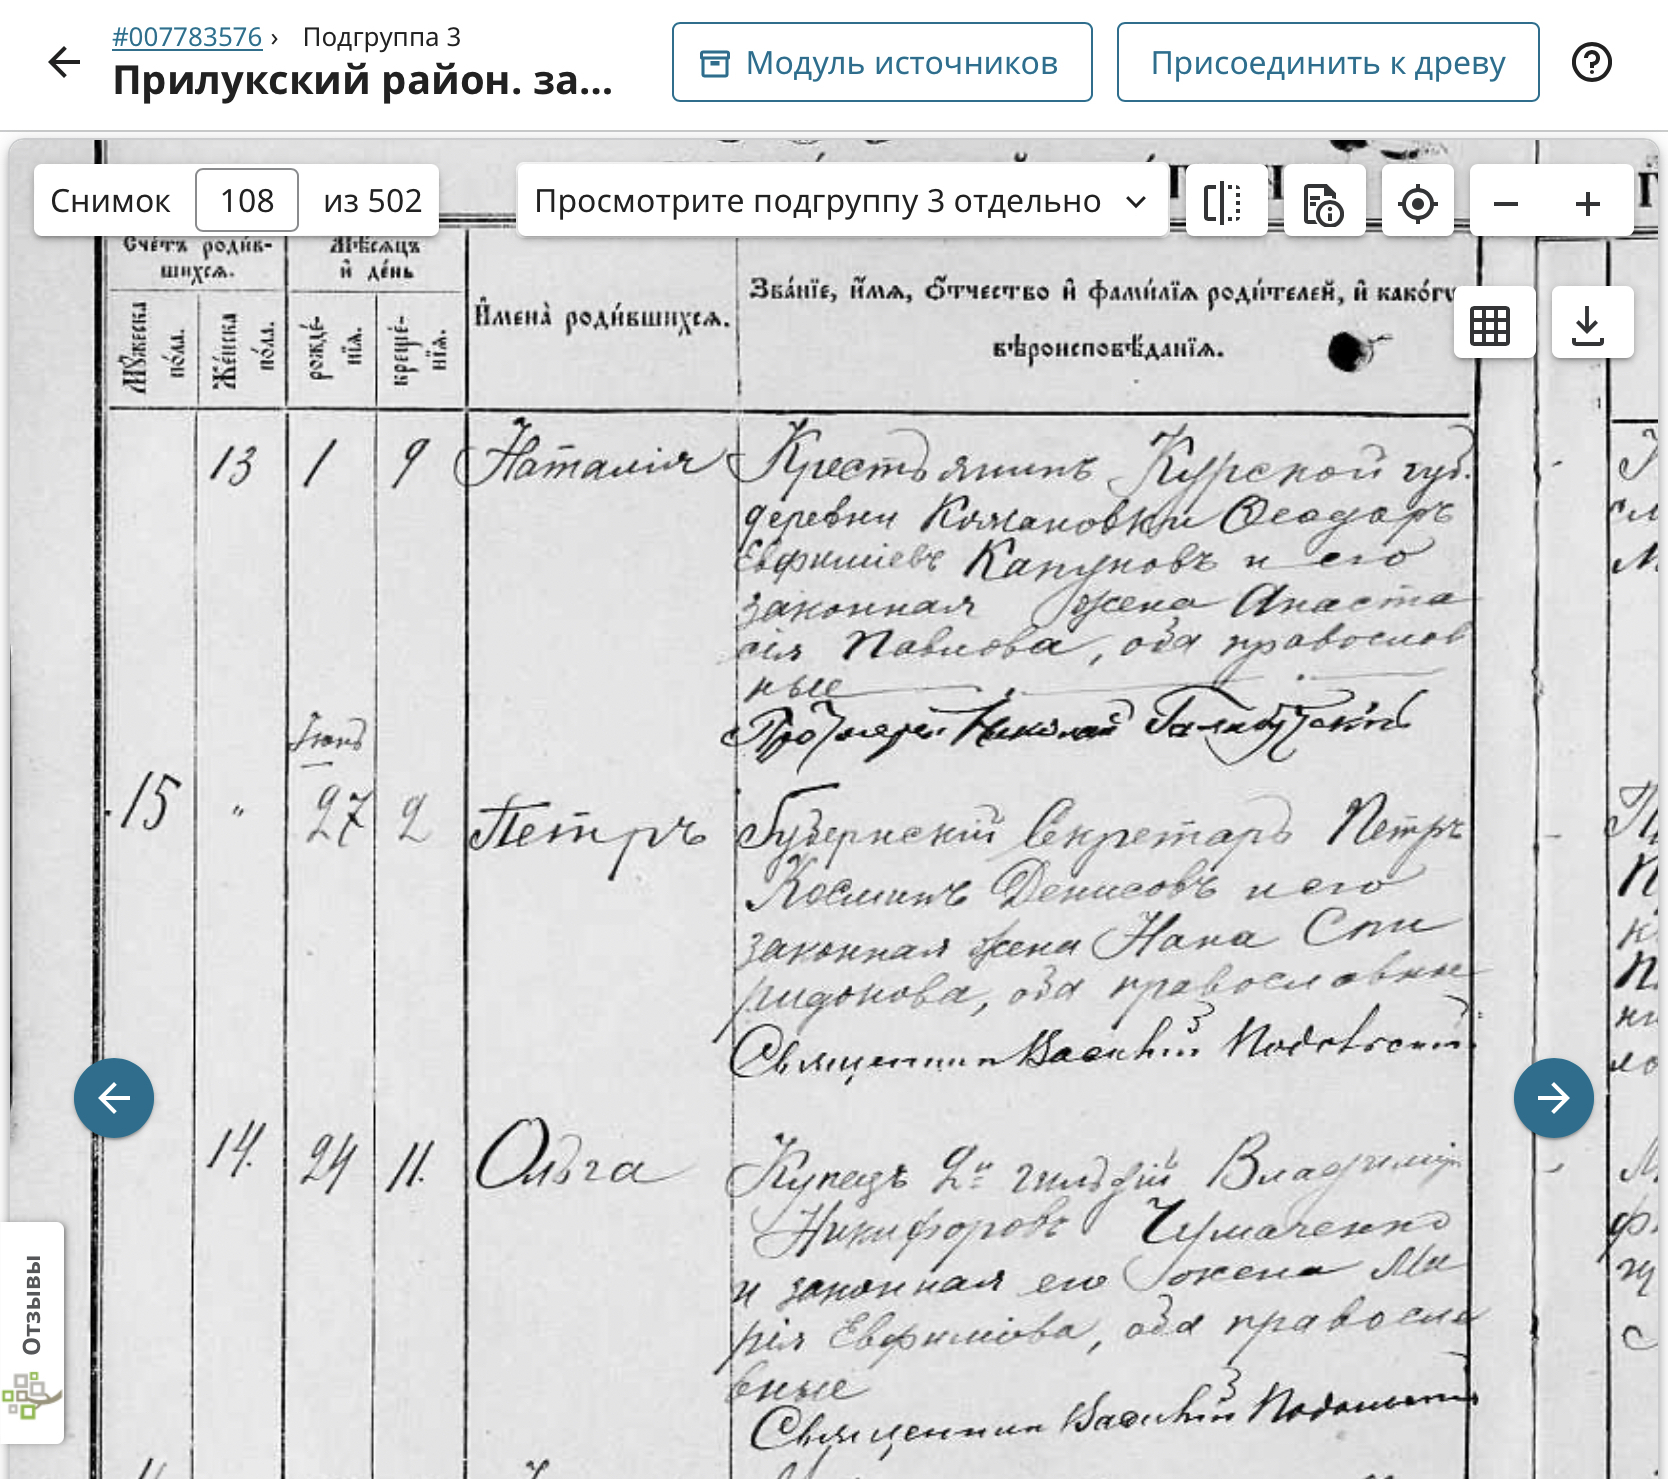 #007783576 › Подгруппа 3
Прилукский район. за...
Модуль источников
Присоединить к древу
Снимок 108 из 502
Просмотрите подгруппу 3 отдельно
Счетъ родив-
шихся.
Мѣсяцъ
и день
Мужеска
пола.
Женска
пола.
рожде-
нія.
креще-
нія.
Имена родившихся.
Званіе, имя, отчество и фамилія родителей, и какогѡ
вѣроисповѣданія.
13 1 9 Наталія
Крестьянинъ Курской губ.
деревни Ѳеодоръ
Евфиміевъ Капуновъ и его
законная жена Анаста
сія Павлова, оба православ
ные
Протоіерей Николай
Іюнь
15 " 27 2 Петръ
Губернскій Секретарь Петръ
Косминъ Денисовъ и его
законная жена Анна Спи
ридонова, оба православные
Священник Василий
14. 24 11. Ольга
Купецъ 2й гильдіи Владимир
Никифоровъ Чумаченко
и законная его жена Ма
рія Евфимова, оба правосла
вные
Священник Василий
Отзывы